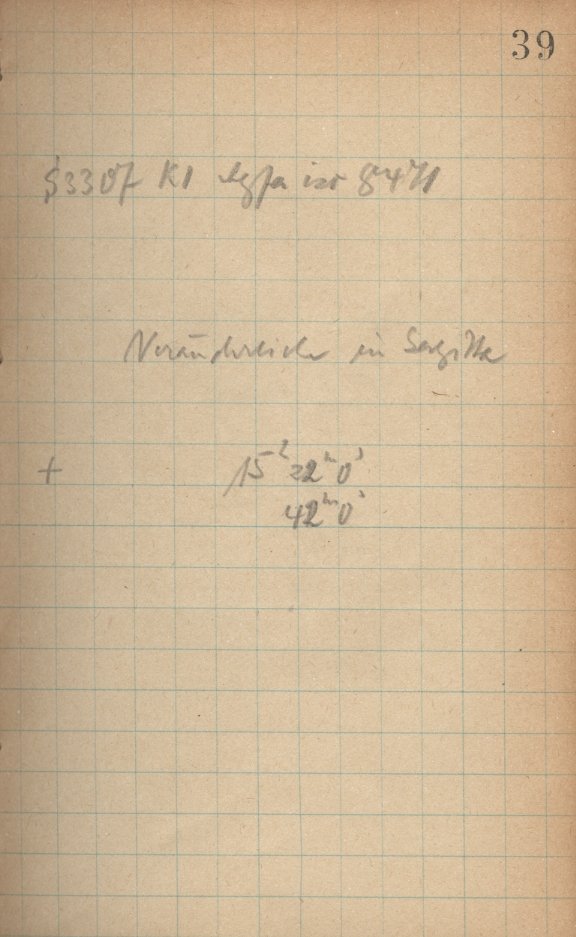 39
S3307 K1 Agfa iso 8471
Veränderliche in Sagitta
+ 15ʰ 22ᵐ 0ˢ
42ᵐ 0ˢ